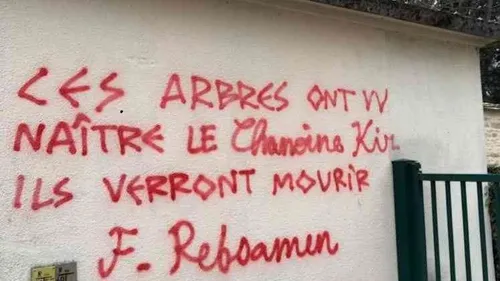 CES ARBRES ONT VV
NAÎTRE LE Chanoine Kir
ILS VERRONT MOURIR
F. Rebsamen